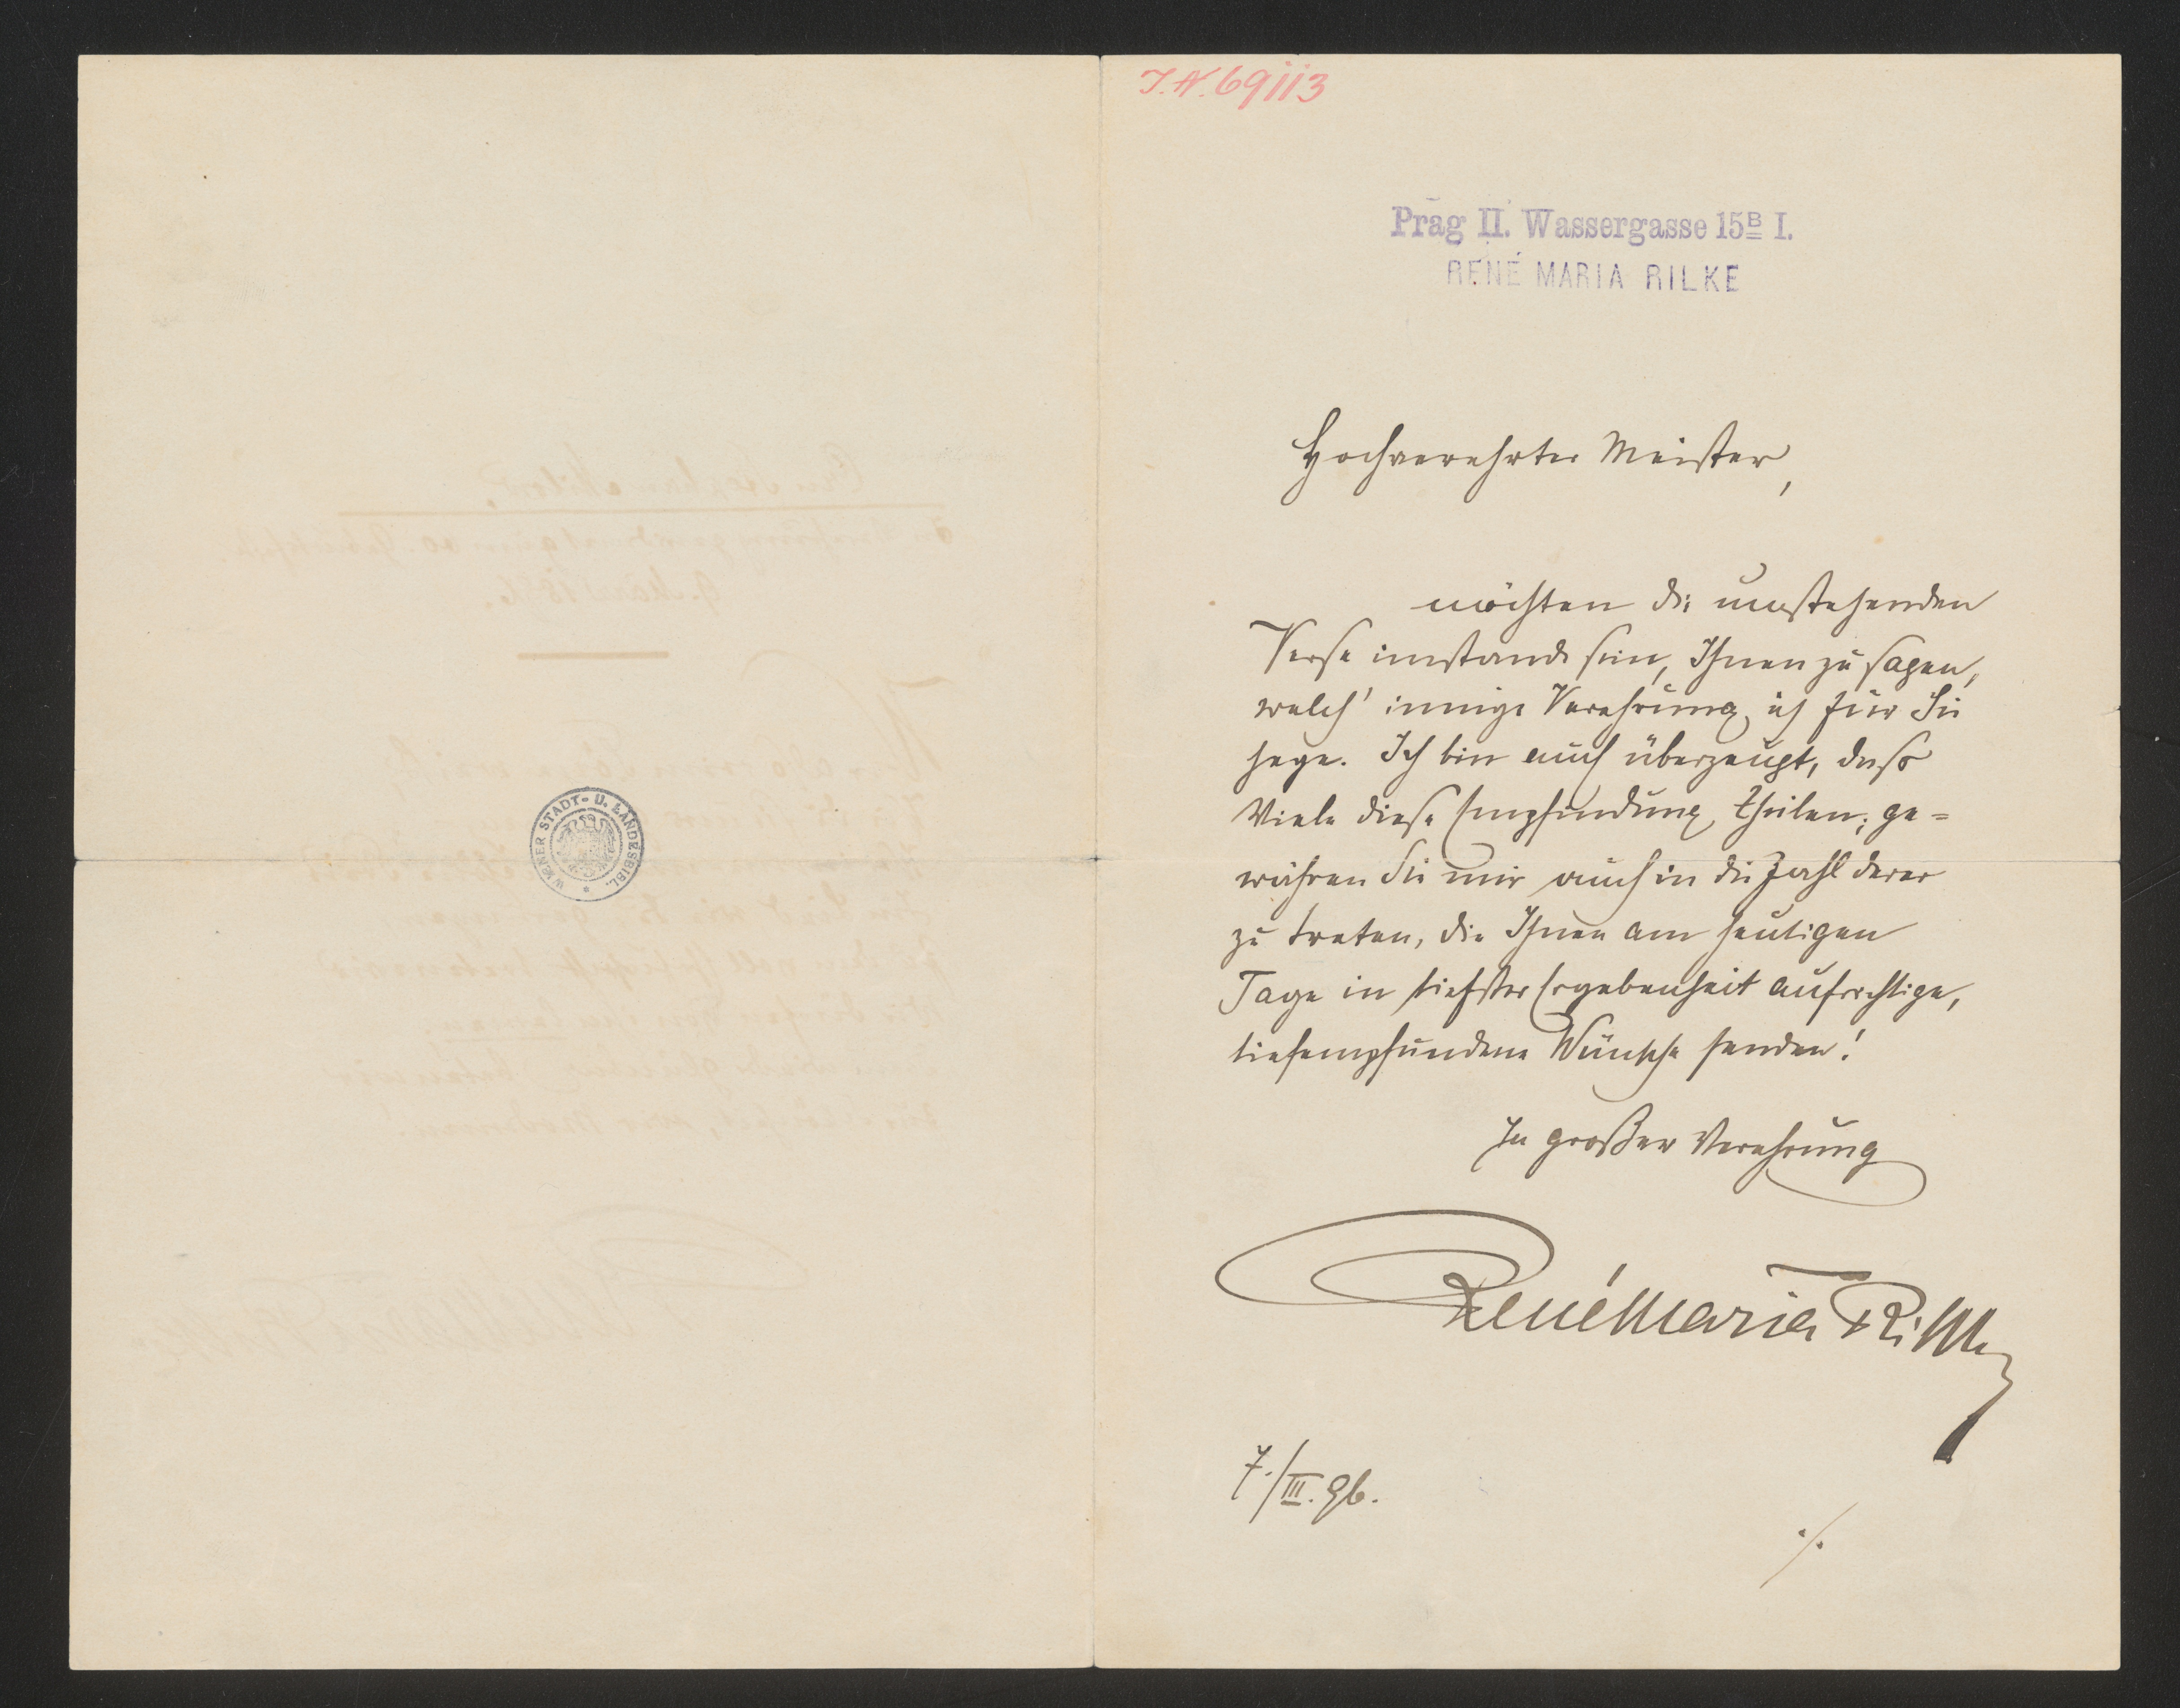 J.N. 69113
Prag II. Wassergasse 15B I.
RENÉ MARIA RILKE
Hochverehrter Meister,
möchten die umstehenden
Verse imstande sein, Ihnen zu sagen,
welch' innige Verehrung ich für Sie
hege. Ich bin auch überzeugt, dass
Viele diese Empfindung theilen; ge=
währen Sie mir auch in die Zahl derer
zu treten, die Ihnen am heutigen
Tage in tiefster Ergebenheit aufrichtige,
tiefempfundene Wünsche senden!
In großer Verehrung
René Maria Rilke
7./III. 96.
./.
WIENER STADT- U. LANDESBIBL.